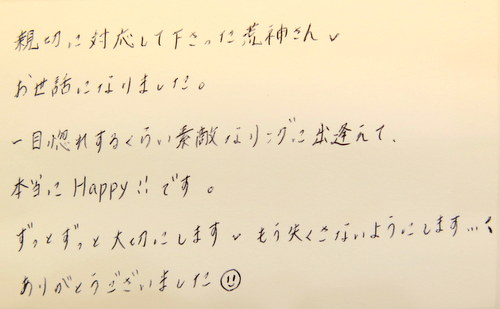 親切に対応して下さった荒神さん✓
お世話になりました。
一目惚れするくらい素敵なリングに出逢えて、
本当にHappy!!です。
ずっとずっと大切にします✓もう失くさないようにします…💧
ありがとうございました☺